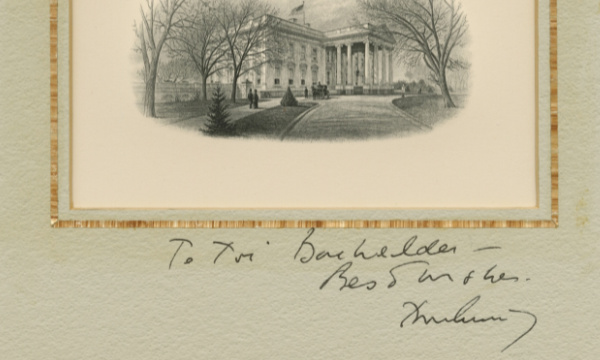 To Toi Bachelder —
Best wishes.